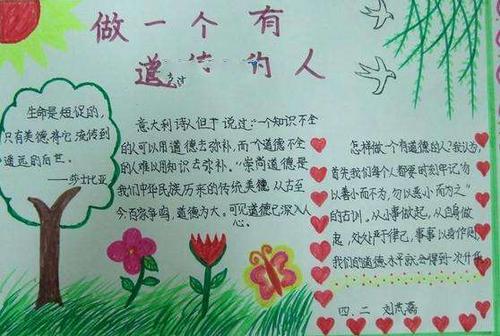 做一个有
道德的人
生命是短促的,
只有美德将它流传到
遥远的后世。
——莎士比亚
意大利诗人但丁说过:一个知识不全
的人可以用道德去弥补,而一个道德不全
的人难以用知识去弥补。“崇尚道德是
我们中华民族历来的传统美德,从古至
今百家争鸣,道德为大,可见道德已深入人
心。
怎样做一个有道德的人?我认为,
首先我们每个人都要时刻牢记“勿
以善小而不为,勿以恶小而为之”
的古训。从小事做起,从自身做
起,处处严于律己,事事以身作则,
我们的道德水平就会得到一次升华
四.二 刘芮